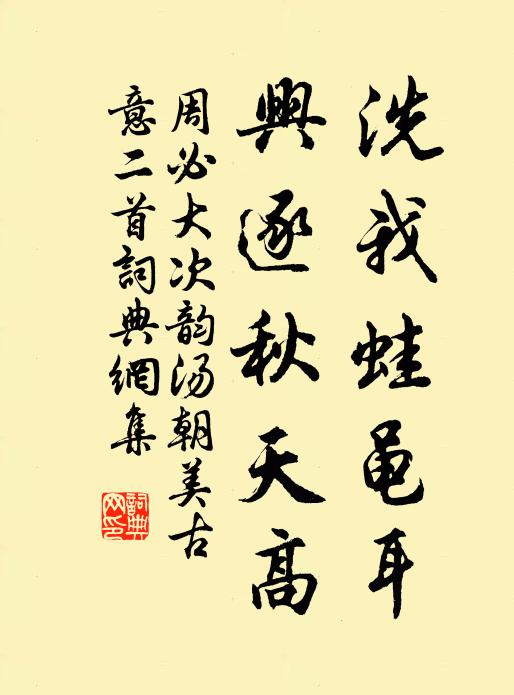 洗我蛙黽耳
興逐秋天高
周必大次韵汤朝美古
意二首詞典網集
詞典
网印